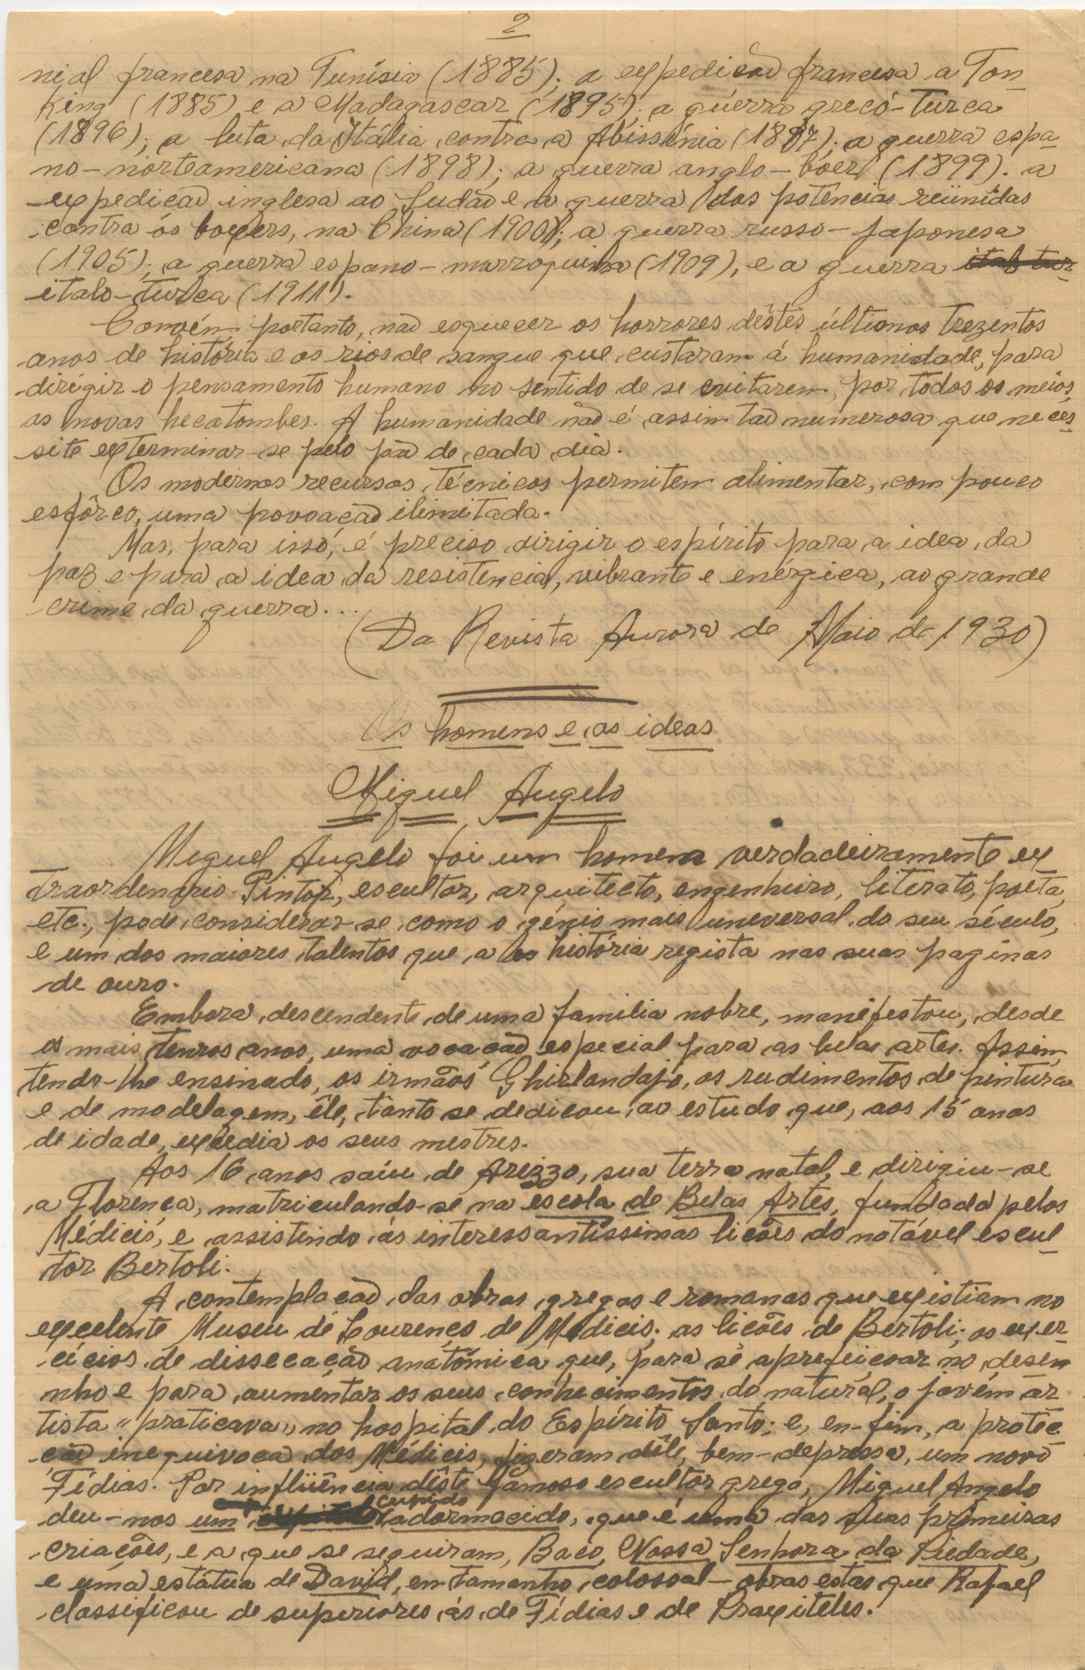 2
nial francesa na Tunísia (1885); a expedição francesa a Ton
King (1885) e a Madagascar (1895); a guerra greco-turca
(1896); a luta da Itália contra a Abissínia (1887); a guerra espa
no-norteamericana (1898); a guerra anglo-bóer (1899). a
expedição inglesa ao Sudão e a guerra das potencias reünidas
contra os boxers, na China (1900); a guerra russo-japonesa
(1905); a guerra espano-marroquina (1909), e a guerra
italo-turca (1911).
Convém, portanto, não esquecer os horrores dêstes últimos trezentos
anos de história e os rios de sangue que custaram á humanidade, para
dirigir o pensamento humano no sentido de se evitarem, por todos os meios,
as novas hecatombes. A humanidade não é assim tão numerosa que neces
site exterminar-se pelo pão de cada dia.
Os modernos recursos técnicos permitem alimentar, com pouco
esfôrço, uma povoação ilimitada.
Mas, para issó, é preciso dirigir o espírito para a idea da
paz e para a idea da resistencia, vibrante e enérgica, ao grande
crime da guerra...
(Da Revista Aurora de Maio de 1930)
Os homens e as ideas
Miguel Angelo
Miguel Angelo foi um homem verdadeiramente ex
traordenario. Pintor, escultor, arquitecto, engenheiro, literato, poeta,
etc., pode considerar-se como o génio mais universal do seu século,
e um dos maiores talentos que a história regista nas suas paginas
de ouro.
Embora descendente de uma familia nobre, manifestou, desde
os mais tenros anos, uma vocação especial para as belas artes. Assim,
tendo-lhe ensinado, os irmãos Ghirlandajo, os rudimentos de pintura
e de modelagem, êle, tanto se dedicou ao estudo que, aos 15 anos
de idade, excedia os seus mestres.
Aos 16 anos saíu de Arezzo, sua terra natal, e dirigiu-se
a Florença, matriculando-se na escola de Belas Artes, fundada pelos
Médicis, e assistindo ás interessantissimas lições do notável escul-
tor Bertoli.
A contemplação das obras gregas e romanas que existiam no
excelente Museu de Lourenço de Médicis; as lições de Bertoli; os exer-
cicios de dissecação anatômica que, para se aprefeiçoar no desen
nho e para aumentar os seus conhecimentos do natural, o jovem ar
tista "praticava" no hospital do Espírito Santo; e, en-fim, a protéc
ção inequivoca dos Médicis, fizeram dêle, bem-depressa, um novo
Fídias. Por influência dêste famoso escultor grego, Miguel Angelo
deu-nos um cupido adormecido, que é uma das suas primeiras
criações, e a que se seguiram, Baco, Nossa Senhora da Piedade,
e uma estátua de David, em tamanho colossal - obras estas que Rafael
classificou de superiores ás de Fídias e de Praxiteles.